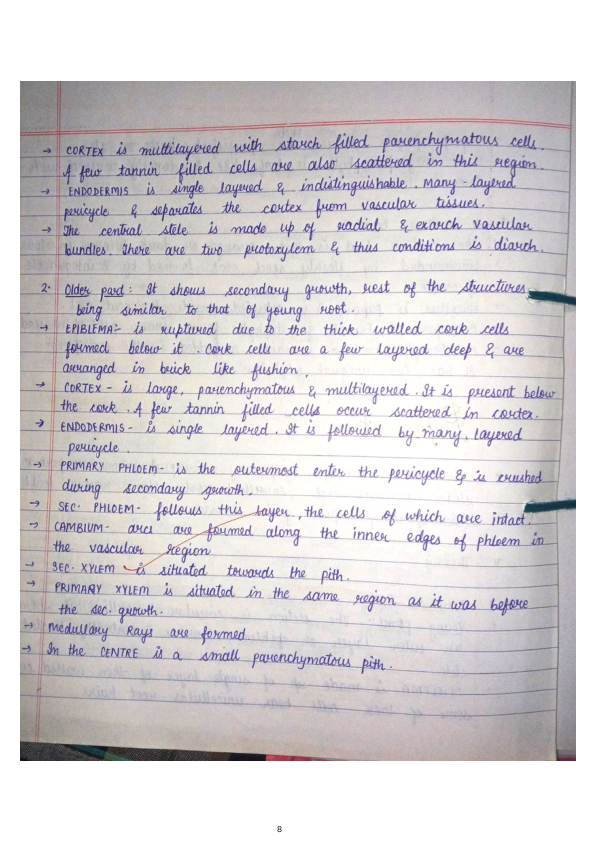 → CORTEX is multilayered with starch filled parenchymatous cells.
A few tannin filled cells are also scattered in this region.
→ ENDODERMIS is single layered & indistinguishable. Many-layered
pericycle & separates the cortex from vascular tissues.
→ The central stele is made up of radial & exarch vascular
bundles. There are two protoxylem & thus conditions is diarch.
2. Older part: It shows secondary growth, rest of the structures
being similar to that of young root.
→ EPIBLEMA:- is ruptured due to the thick walled cork cells
formed below it. Cork cells are a few layered deep & are
arranged in brick like fushion.
→ CORTEX - is large, parenchymatous & multilayered. It is present below
the cork. A few tannin filled cells occur scattered in cortex.
→ ENDODERMIS - is single layered. It is followed by many, layered
pericycle.
→ PRIMARY PHLOEM - is the outermost enter the pericycle & is crushed
during secondary growth.
→ SEC. PHLOEM - follows this layer, the cells of which are intact.
→ CAMBIUM - arcs are formed along the inner edges of phloem in
the vascular region
→ SEC. XYLEM is situated towards the pith.
→ PRIMARY XYLEM is situated in the same region as it was before
the sec. growth.
→ Medullary Rays are formed.
→ In the CENTRE is a small parenchymatous pith.
8